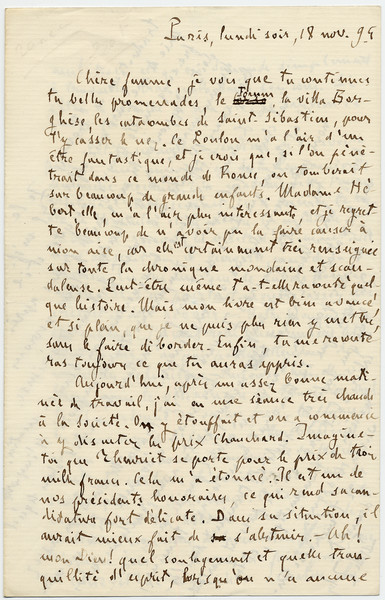 Paris, lundi soir, 18 nov. 95
Chère femme, je vois que tu continues
tes belles promenades, le Forum, la villa Bor-
ghèse, les catacombes de Saint Sébastien, pour
t'y casser le nez. Ce Loulou m'a l'air d'un
être fantastique, et je crois que, si l'on péné-
trait dans ce monde de Rome, on tomberait
sur beaucoup de grands enfants. Madame Hé-
bert, elle, m'a l'air plus intéressante, et je regret-
te beaucoup de n'avoir pu la faire causer à
mon aise, car elle est certainement très renseignée
sur toute la chronique mondaine et scan-
daleuse. Peut-être même t'a-t-elle raconté quel-
que histoire. Mais mon livre est bien avancé,
et si plein, que je ne puis plus rien y mettre,
sans le faire déborder. Enfin, tu me raconte-
ras toujours ce que tu auras appris.
Aujourd'hui, après une assez bonne mati-
née de travail, j'ai eu une séance très chaude
à la Société. On y étouffait et on a commencé
à y discuter le prix Chauchard. Imagine-
toi que Theuriet se porte pour le prix de trois
mille francs. Cela m'a étonné. Il est un de
nos présidents honoraires, ce qui rend sa can-
didature fort délicate. Dans sa situation, il
aurait mieux fait de s'abstenir. — Ah!
mon Dieu! quel soulagement et quelle tran-
quillité d'esprit, lorsqu'on n'a aucune